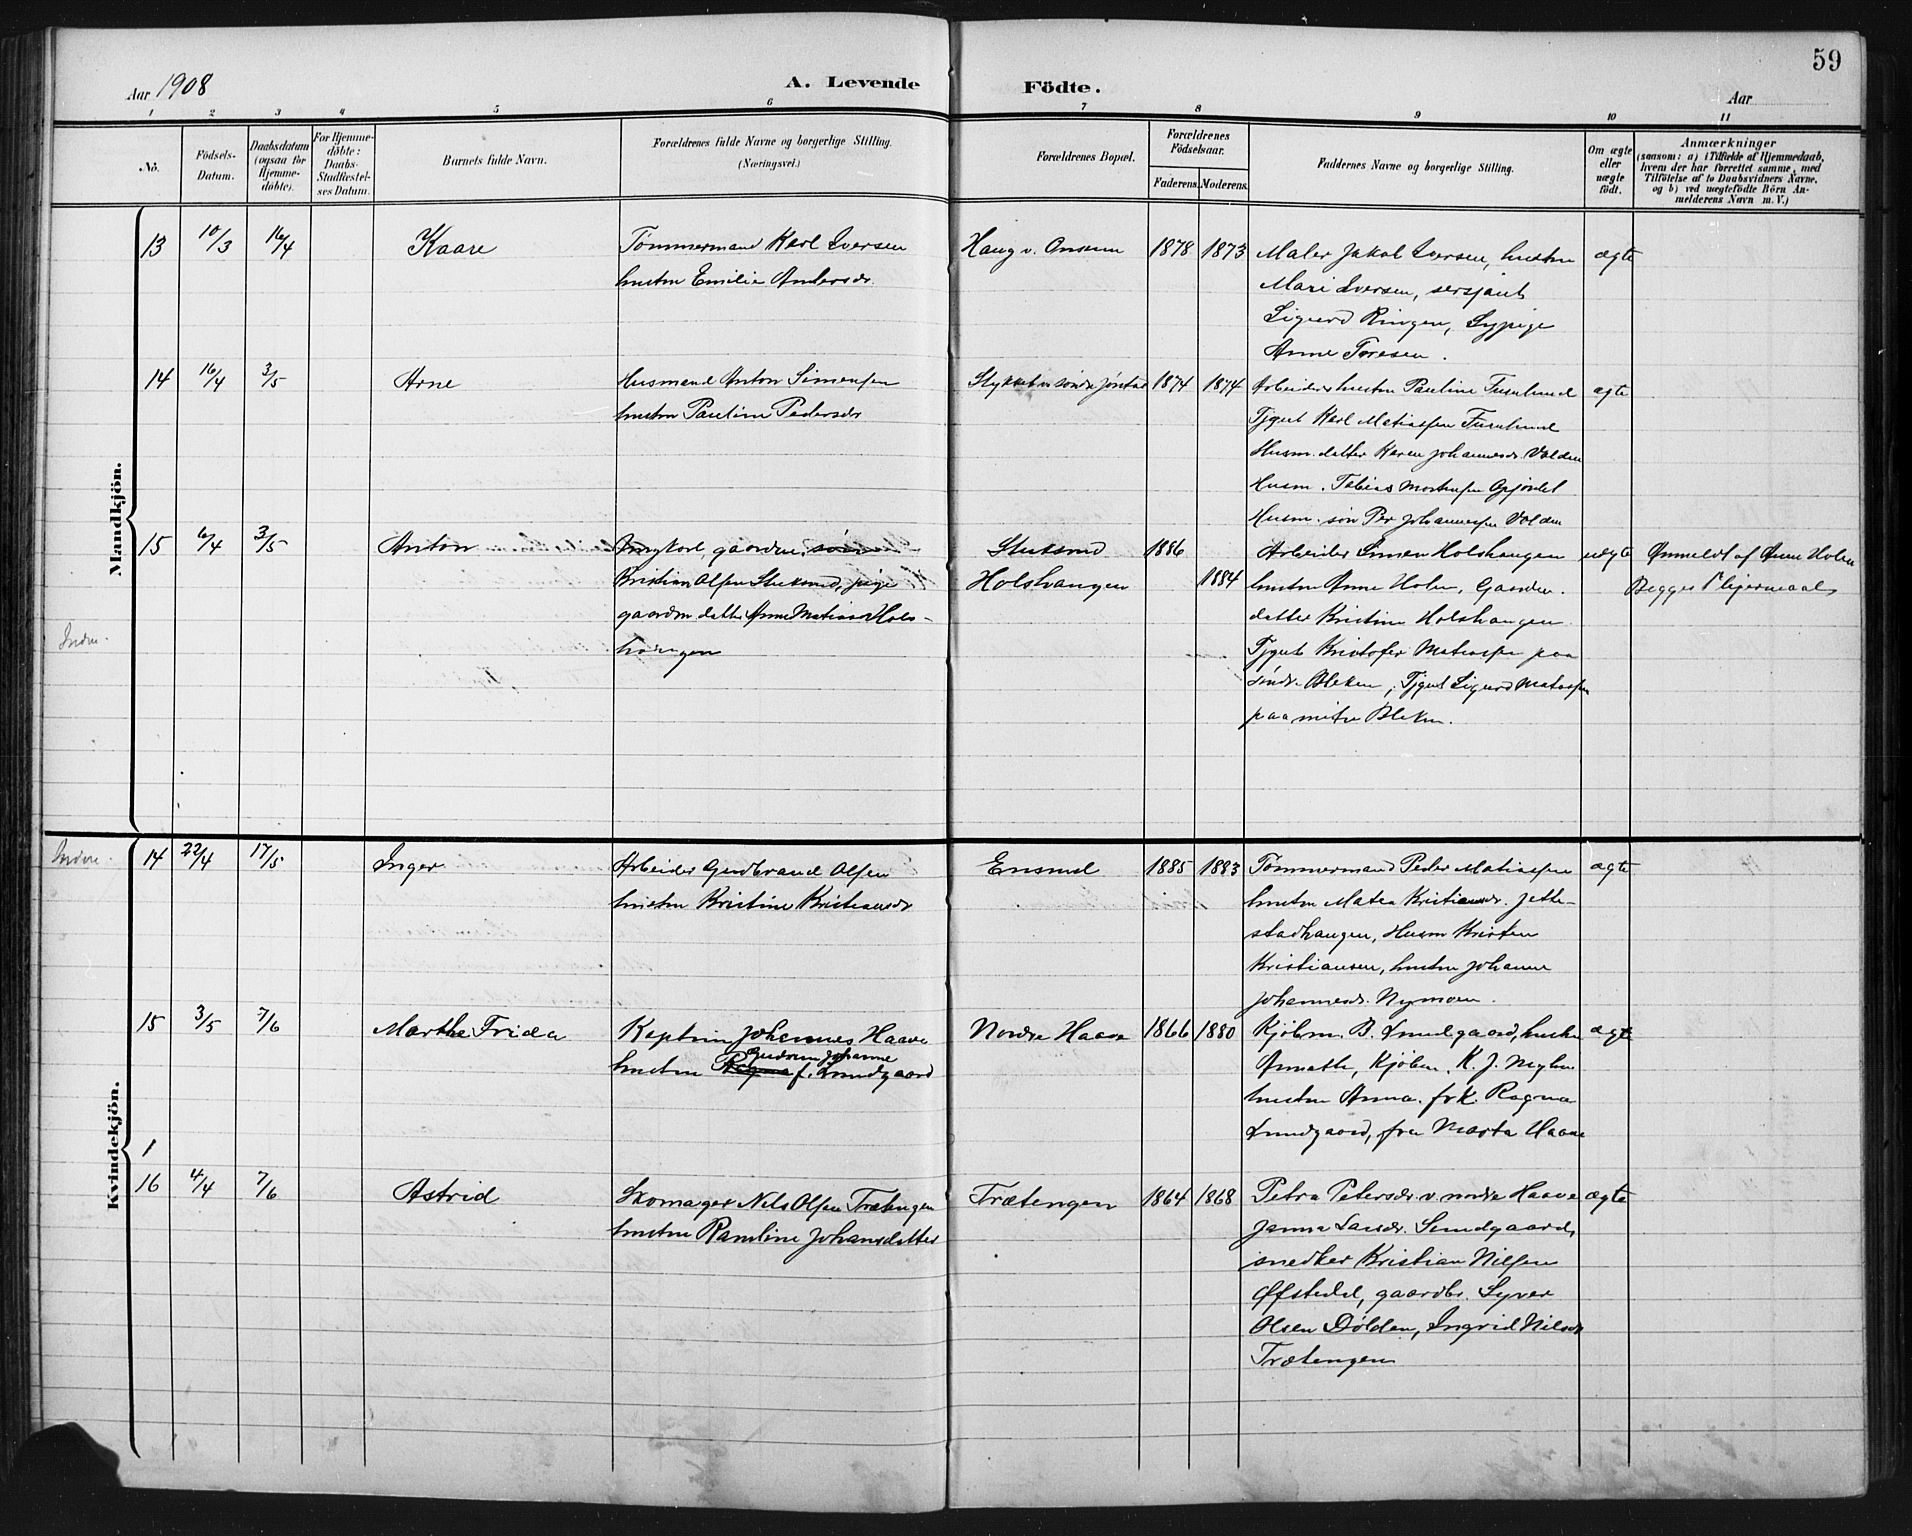 59
Aar 1908
A. Levende
Födte.
Aar
1 2 3 4 5 6 7 8 9 10 11
No.
Födsels-
Datum.
Daabsdatum
(ogsaa for
Hjemme-
döbte).
For Hjemme-
döbte:
Daabs-
Stadfæstel-
ses Datum.
Barnets fulde Navn.
Forældrenes fulde Navne og borgerlige Stilling.
(Næringsvei.)
Forældrenes Bopæl.
Forældrenes
Födselsaar.
Faderens. Moderens.
Faddernes Navne og borgerlige Stilling.
Om ægte
eller
uægte
födt.
Anmærkninger
(saasom: a) i Tilfælde af Hjemmedaab,
hvem der har forrettet samme, med
Tilföielse af to Daabsvidners Navne,
og b) ved uægtefödte Börn An-
melderens Navn m. V.)
Mandkjön.
13 10/3 16/4 Kaare
Tømmermand Karl Iversen
hustru Emilie Andersdr.
Haug v. Onsum 1878 1873
Maler Jakob Iversen, hustru
Mari Iversen, sersjant
Sigurd Ringen, Sypige
Anne Toresen.
ægte
14 16/4 3/5 Arne
Husmand Anton Simensen
hustru Pauline Pedersdr
Stykket u søndre Jønstad 1874 1874
Arbeiderhustru Pauline Furulund
Tjgut Karl Matiassen Furulund
Husm. datter Karen Johannesdr. Volden
Husm. Tobias
Husm. søn Per Johannessen Volden
ægte
15 6/4 3/5 Anton
Ungkarl, gaardm. søn
Kristian Olsen Stuksrud, pige
gaardm datter Anne Matiasdr Hols-
haugen
Stuksrud
Holshaugen
1886
1884
Arbeider Simen Holshaugen
hustru Anne Holen, Gaardm.
datter Kristine Holshaugen
Tjgut Kristofer Matiassen paa
søndr. Bleken, Tjgut Sigurd Matiassen
paa mitre Bleken.
uægte
Anmeldt af Anne Holen
Begges 1ste leiermaal
Indre.
Kvindekjön.
Indre.
14 22/4 17/5 Inger
Arbeider Gudbrand Olsen
hustru Kristine Kristiansdr
Ensrud 1885 1883
Tømmermand Peder Matiassen
hustru Matea Kristiansdr. Jette-
stadhaugen, Husm Kristen
Kristiansen, hustru Johanne
Johannesdr. Nymoen.
ægte
15 3/5 7/6 Marthe Frida
Kaptein Johannes Haave
Gudrun Johanne
hustru Ragna f. Lundgaard
Nordre Haave 1866 1880
Kjøbm. B. Lundgaard, hustru
Annette, Kjøbm. K. J. Myhre
hustru Anna. frk. Ragna
Lundgaard, fru Marta Haave
ægte
1
16 4/4 7/6 Astrid
Skomager Nils Olsen Trætengen
hustru Pauline Johansdatter
Trætengen 1864 1868
Petra Petersdr. v. nordre Haave
Janna Larsdr. Lundgaard,
snedker Kristian Nilsen
Øfstedal, gaardbr. Syver
Olsen Dølden, Ingrid Nilsdr
Trætengen
ægte